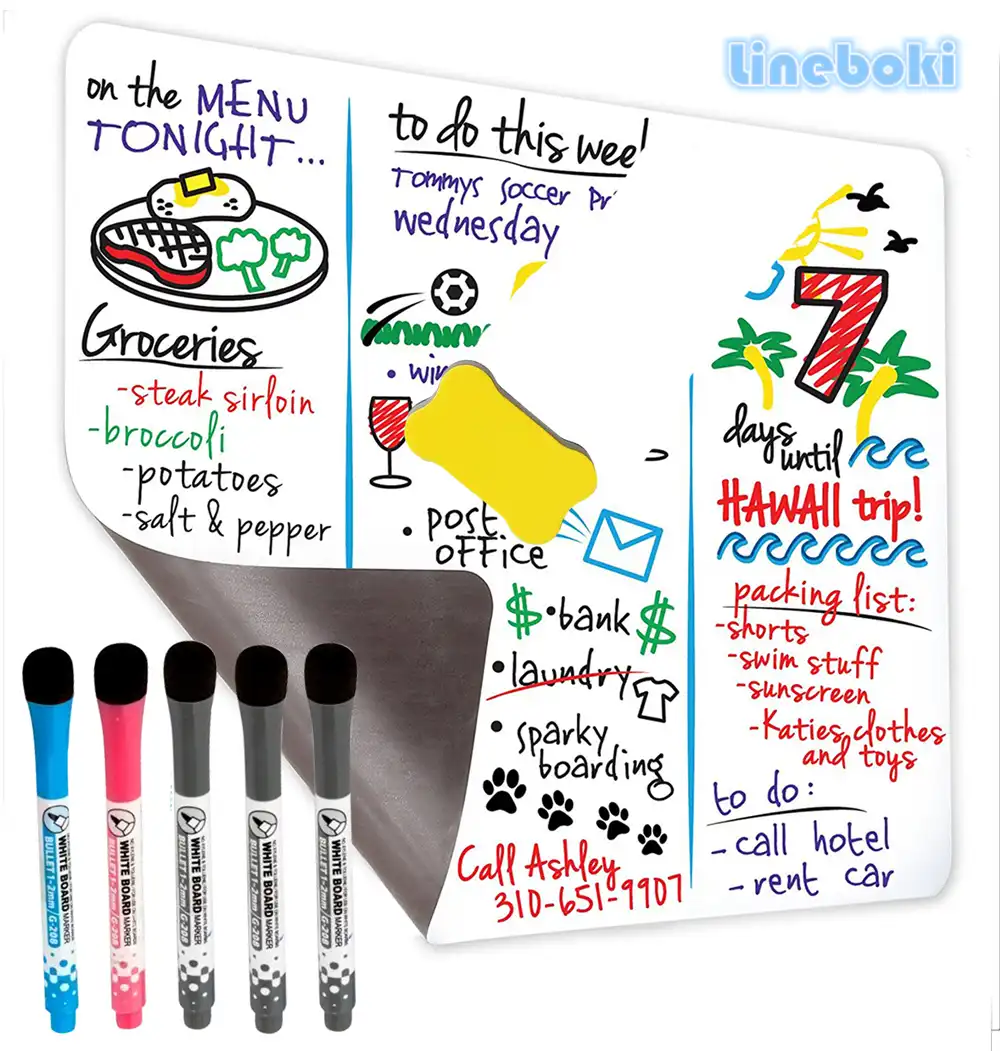 Lineboki
on the MENU
TONIGHT...
Groceries
-steak sirloin
-broccoli
-potatoes
-salt & pepper
to do this wee
Tommys soccer Pr
wednesday
• win
• post
office
$ •bank $
•laundry
• sparky
boarding
Call Ashley
310-651-9907
7
days
until
HAWAII trip!
packing list:
-shorts
-swim stuff
-sunscreen
-Katies clothes
and toys
to do:
- call hotel
- rent car
WHITE BOARD MARKER
BULLET 1-2mm/G-208
WHITE BOARD MARKER
BULLET 1-2mm/G-208
WHITE BOARD MARKER
BULLET 1-2mm/G-208
WHITE BOARD MARKER
BULLET 1-2mm/G-208
WHITE BOARD MARKER
BULLET 1-2mm/G-208